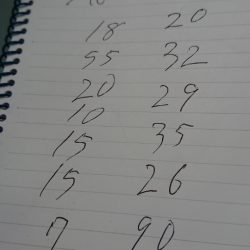 18 20
55 32
20 29
10
15 35
15 26
7 90